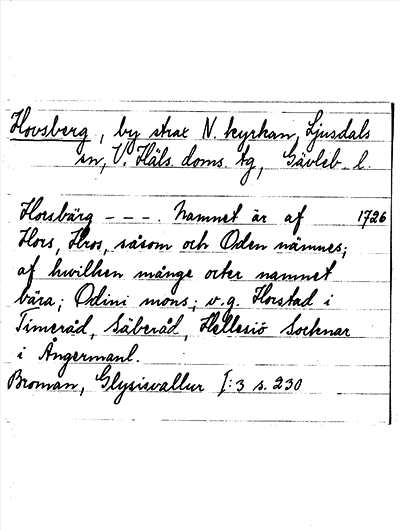 Hovsberg, by strax N. kyrkan, Ljusdals
sn, V. Häls. doms. tg, Gävleb. l.
Horsbärg - - -. Namnet är af 1726
Hors, Hros, såsom och Oden nämnes;
af hwilken många orter namnet
bära; Odini mons; v.g. Horstad i
Timeråd, Säberåd, Hellesiö Socknar
i Ångermanl.
Broman, Glysisvallur I:3 s. 230